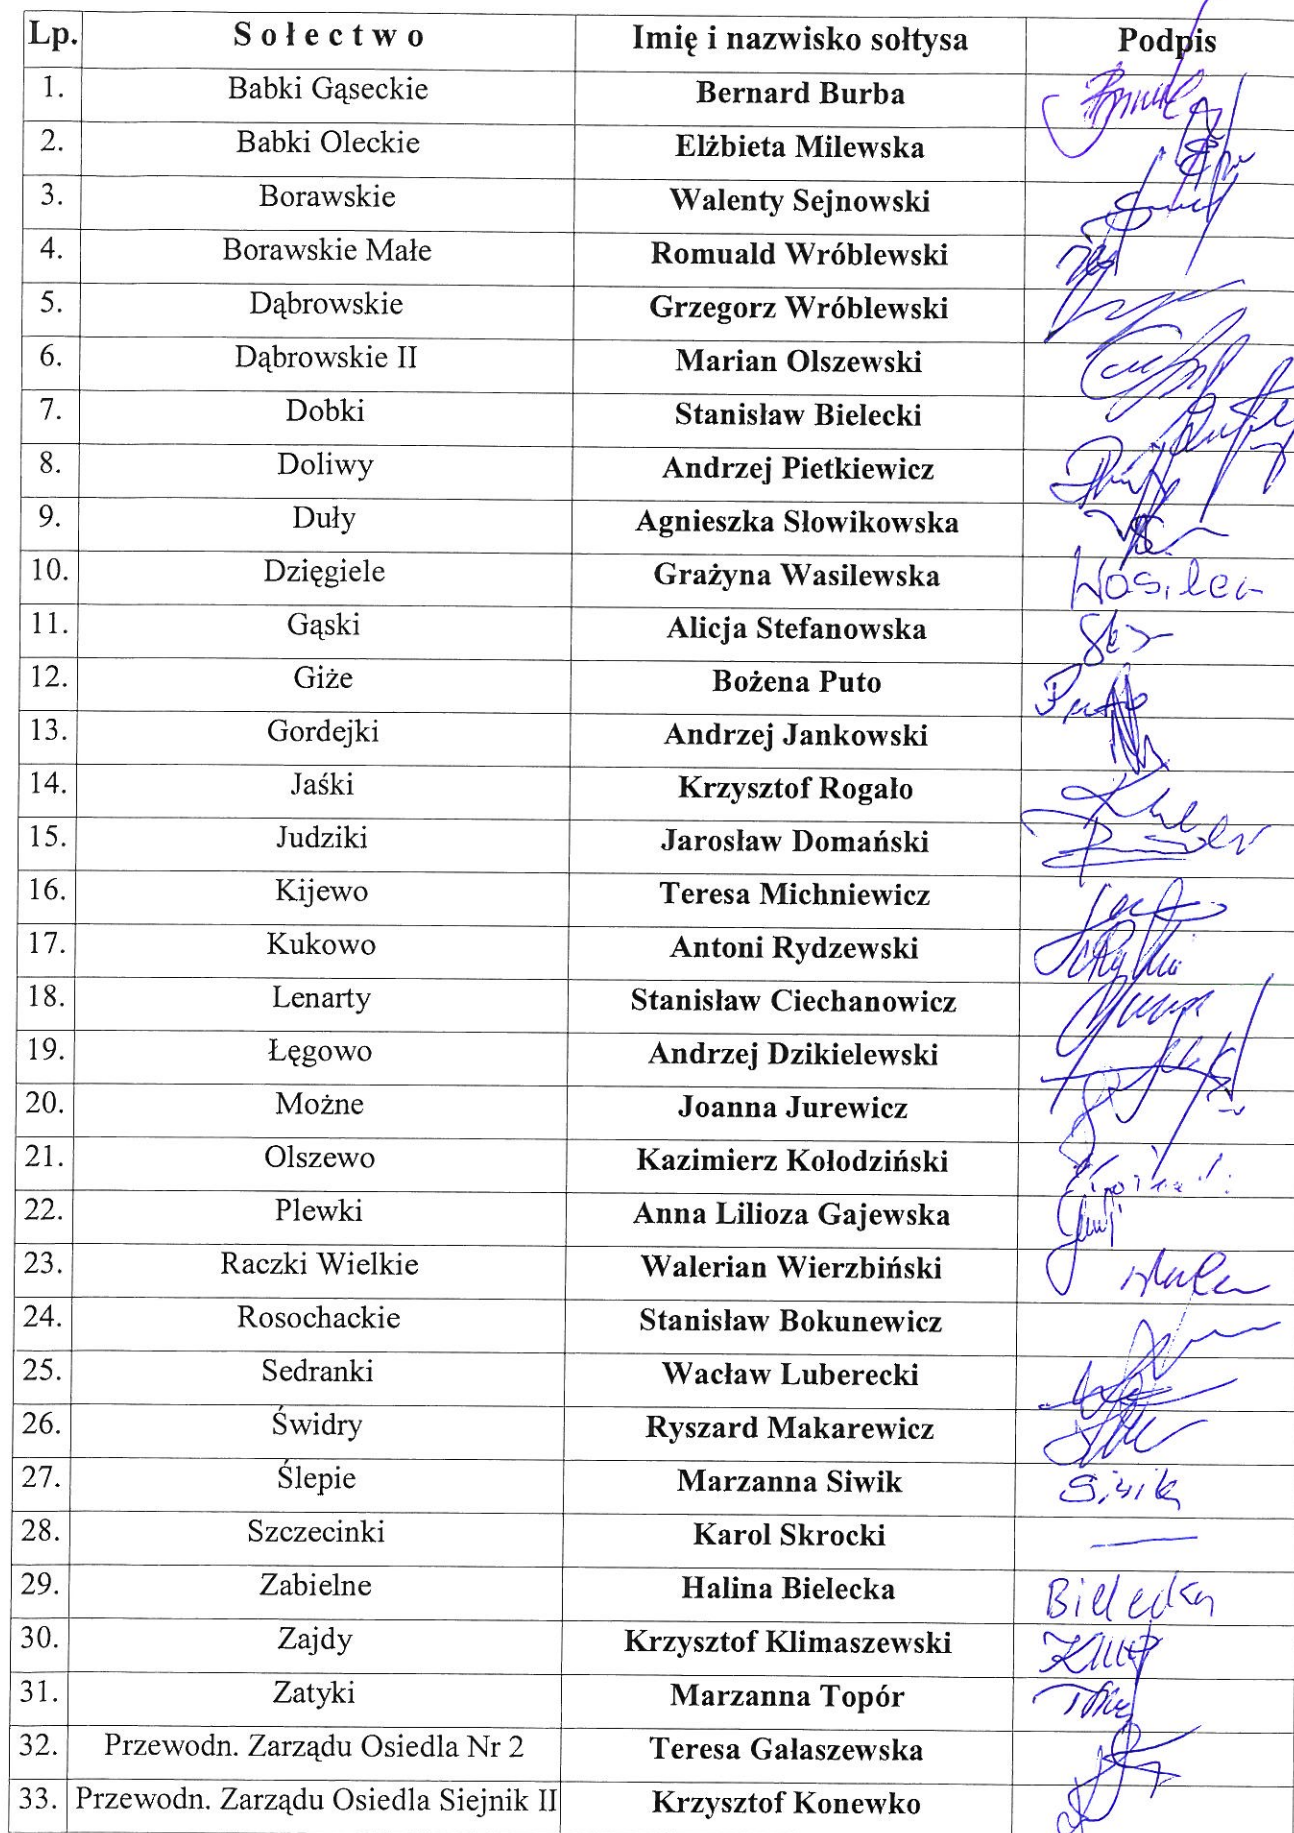 Lp. Sołectwo Imię i nazwisko sołtysa Podpis
1. Babki Gąseckie Bernard Burba
2. Babki Oleckie Elżbieta Milewska
3. Borawskie Walenty Sejnowski
4. Borawskie Małe Romuald Wróblewski
5. Dąbrowskie Grzegorz Wróblewski
6. Dąbrowskie II Marian Olszewski
7. Dobki Stanisław Bielecki
8. Doliwy Andrzej Pietkiewicz
9. Duły Agnieszka Słowikowska
10. Dzięgiele Grażyna Wasilewska
11. Gąski Alicja Stefanowska
12. Giże Bożena Puto
13. Gordejki Andrzej Jankowski
14. Jaśki Krzysztof Rogało
15. Judziki Jarosław Domański
16. Kijewo Teresa Michniewicz
17. Kukowo Antoni Rydzewski
18. Lenarty Stanisław Ciechanowicz
19. Łęgowo Andrzej Dzikielewski
20. Możne Joanna Jurewicz
21. Olszewo Kazimierz Kołodziński
22. Plewki Anna Lilioza Gajewska
23. Raczki Wielkie Walerian Wierzbiński
24. Rosochackie Stanisław Bokunewicz
25. Sedranki Wacław Luberecki
26. Świdry Ryszard Makarewicz
27. Ślepie Marzanna Siwik Siwik
28. Szczecinki Karol Skrocki —
29. Zabielne Halina Bielecka Bielecka
30. Zajdy Krzysztof Klimaszewski
31. Zatyki Marzanna Topór
32. Przewodn. Zarządu Osiedla Nr 2 Teresa Gałaszewska
33. Przewodn. Zarządu Osiedla Siejnik II Krzysztof Konewko